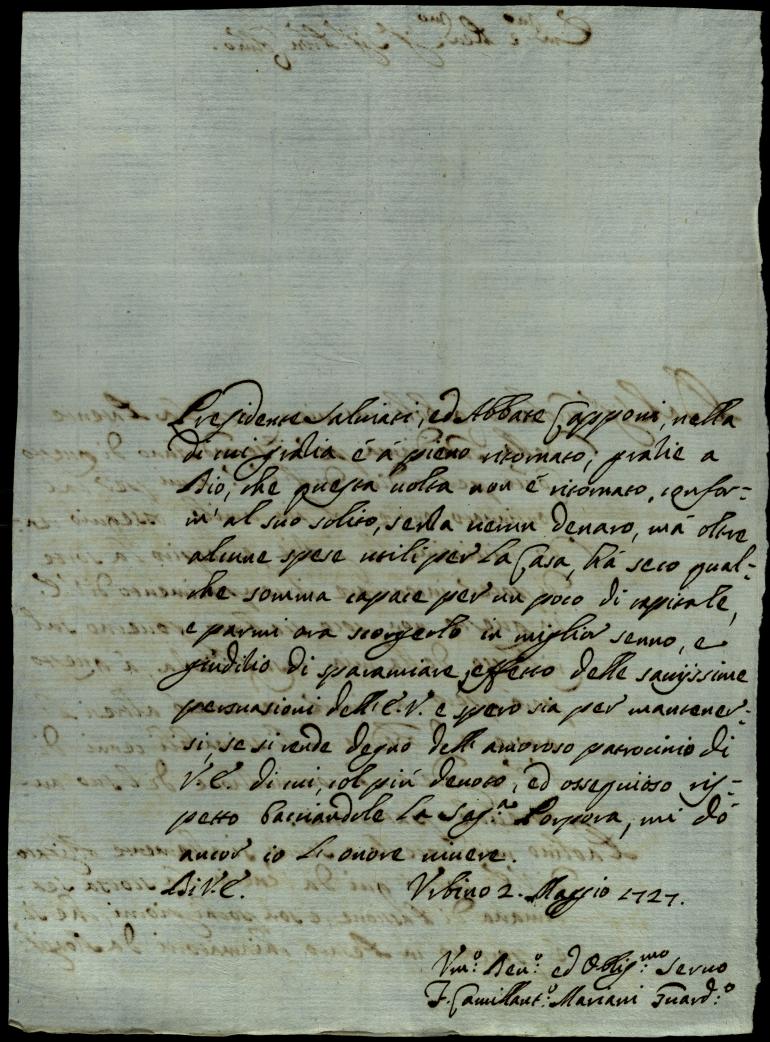 Presidente Salviati, ed Abbate Capponi, nella
di cui gratia é á pieno ritornato; gratie a
Dio, che questa uolta non é ritornato, confor-
m' al suo solito, senza uerun denaro, má oltre
alcune spese utili per La Casa, há seco qual-
che somma capace per un poco di capitale,
e parmi ora scorgerlo in miglior senno, e
giuditio di sparamiare, effetto delle sauijssime
persuasioni dell'E.V. e spero sia per mantener-
si, se si rende degno dell'amoroso patrocinio di
V.E. di cui, col piú deuoto, ed ossequioso ris-
petto bacciandole La Sag.ª Porpora, mi dó
ancor io L'onore uiuere.
Di V.E. Vrbino 2. Maggio 1727.
Vm.º Deu.º ed Oblig.mo Seruo
F. Camill'Ant.º Mariani Guard.º